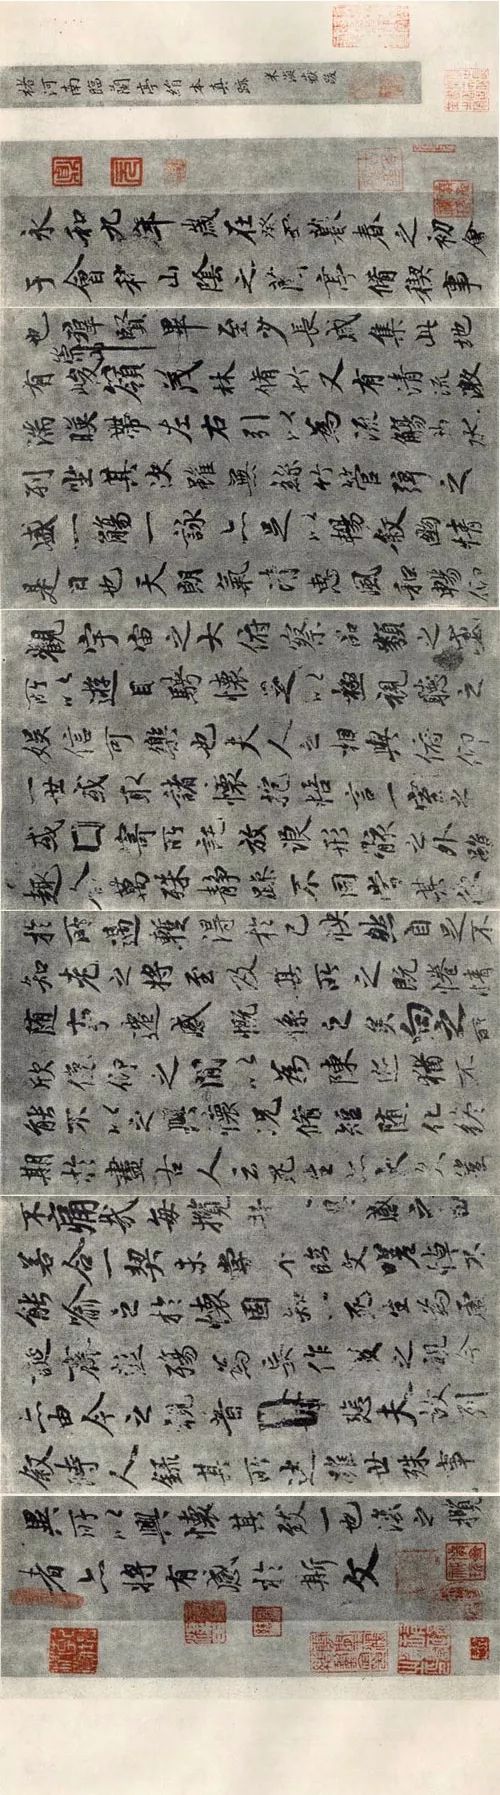 褚河南臨蘭亭絹本真跡 米海嶽跋
永和九年歲在癸丑暮春之初會
于會稽山陰之蘭亭脩稧事
也羣賢畢至少長咸集此地
有崇山峻嶺茂林脩竹又有清流激
湍暎帶左右引以為流觴曲水
列坐其次雖無絲竹管弦之
盛一觴一詠亦足以暢敘幽情
是日也天朗氣清惠風和暢仰
觀宇宙之大俯察品類之盛
所以遊目騁懷足以極視聽之
娛信可樂也夫人之相與俯仰
一世或取諸懷抱悟言一室之內
或因寄所託放浪形骸之外雖
趣舍萬殊靜躁不同當其欣
於所遇暫得於己怏然自足不
知老之將至及其所之既惓情
隨事遷感慨係之矣向之所
欣俛仰之閒以為陳迹猶不
能不以之興懷況脩短隨化終
期於盡古人云死生亦大矣豈
不痛哉每攬昔人興感之由
若合一契未嘗不臨文嗟悼不
能喻之於懷固知一死生為虛
誕齊彭殤為妄作後之視今
亦由今之視昔悲夫故列
敘時人錄其所述雖世殊事
異所以興懷其致一也後之攬
者亦將有感於斯文